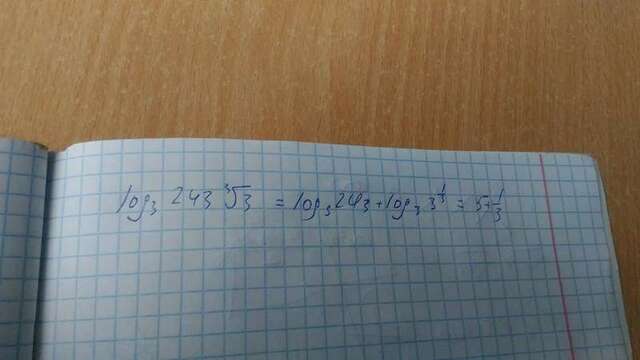 log₃ 243 ∛3 = log₃ 243 + log₃ 3^{1/3} = 5 + 1/3